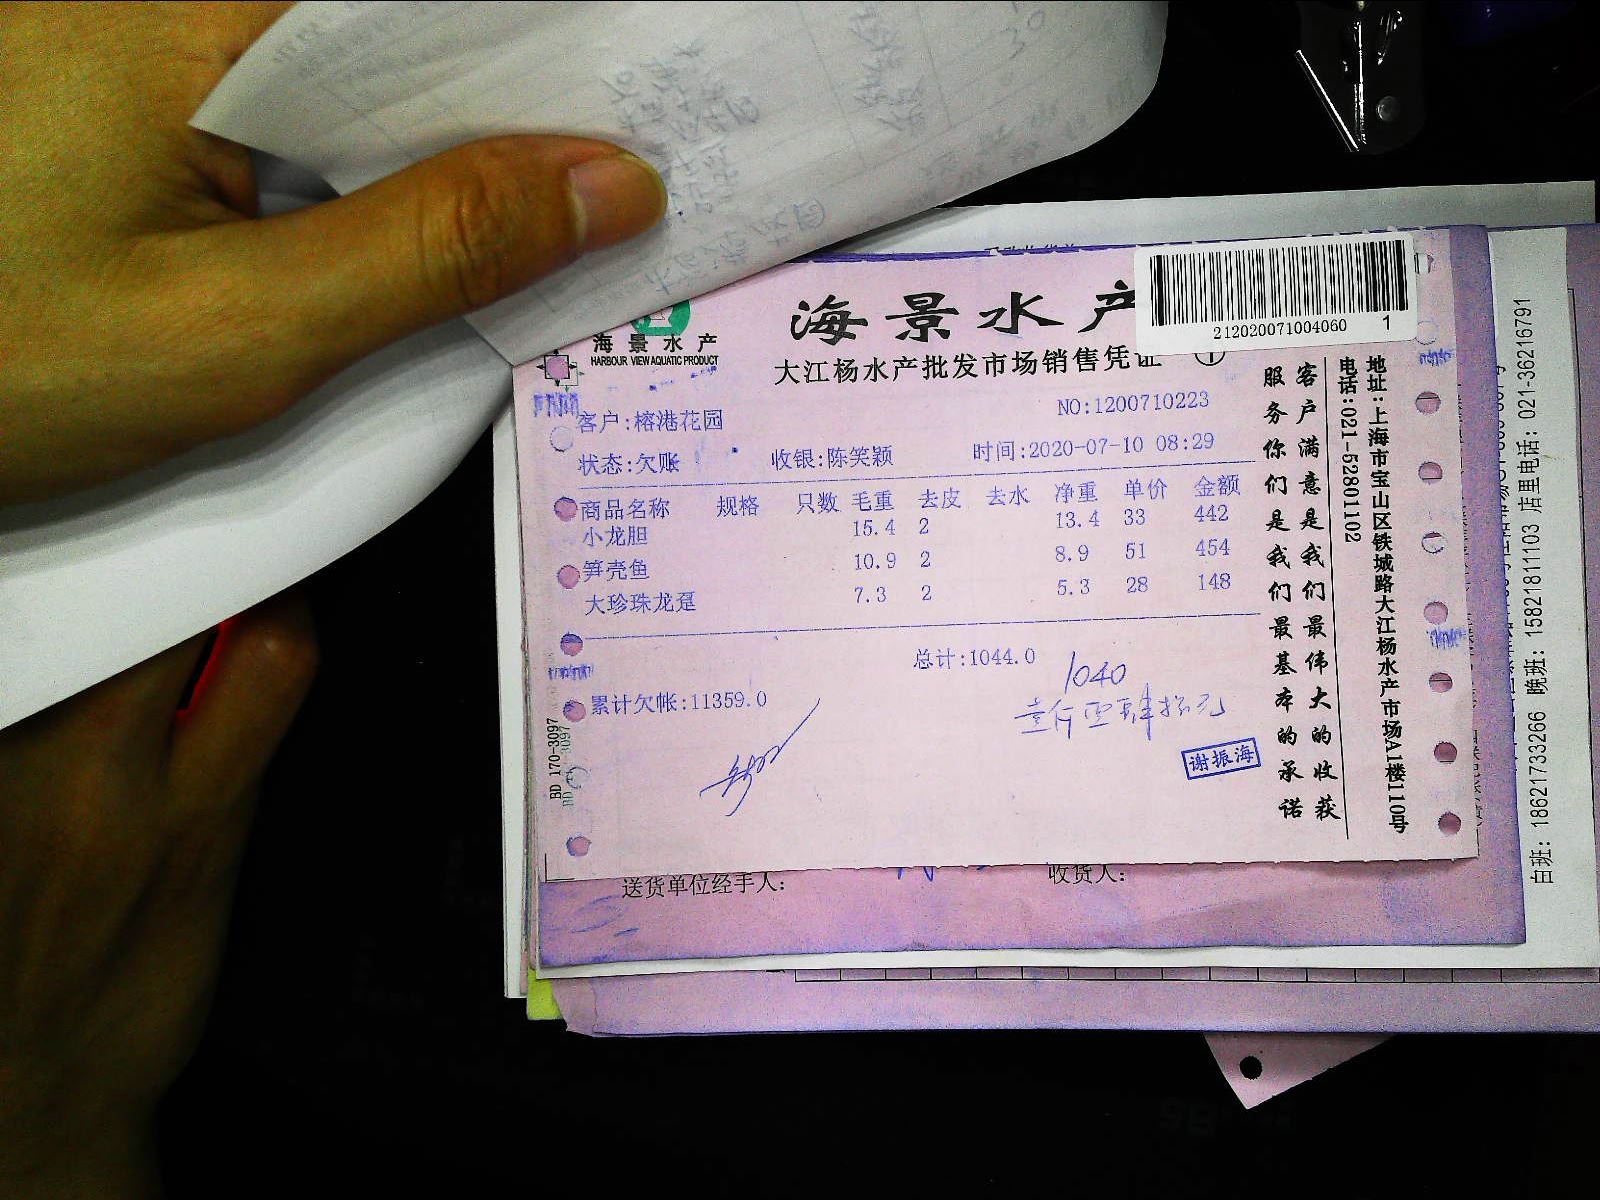 海景水产
HARBOUR VIEW AQUATIC PRODUCT
海景水产
212020071004060 1
大江杨水产批发市场销售凭证
NO:1200710223
客户:榕港花园
状态:欠账 收银:陈笑颖 时间:2020-07-10 08:29
商品名称 规格 只数 毛重 去皮 去水 净重 单价 金额
小龙胆 15.4 2 13.4 33 442
笋壳鱼 10.9 2 8.9 51 454
大珍珠龙趸 7.3 2 5.3 28 148
总计:1044.0
1040
累计欠帐:11359.0
壹仟零肆拾元
谢振海
BD 170-3097
客户满意是我们最伟大的收获
服务你们是我们最基本的承诺
地址:上海市宝山区铁城路大江杨水产市场A1楼110号
电话:021-52801102
送货单位经手人: 收货人:
白班: 18621733266 晚班: 15821811103 店里电话: 021-36216791